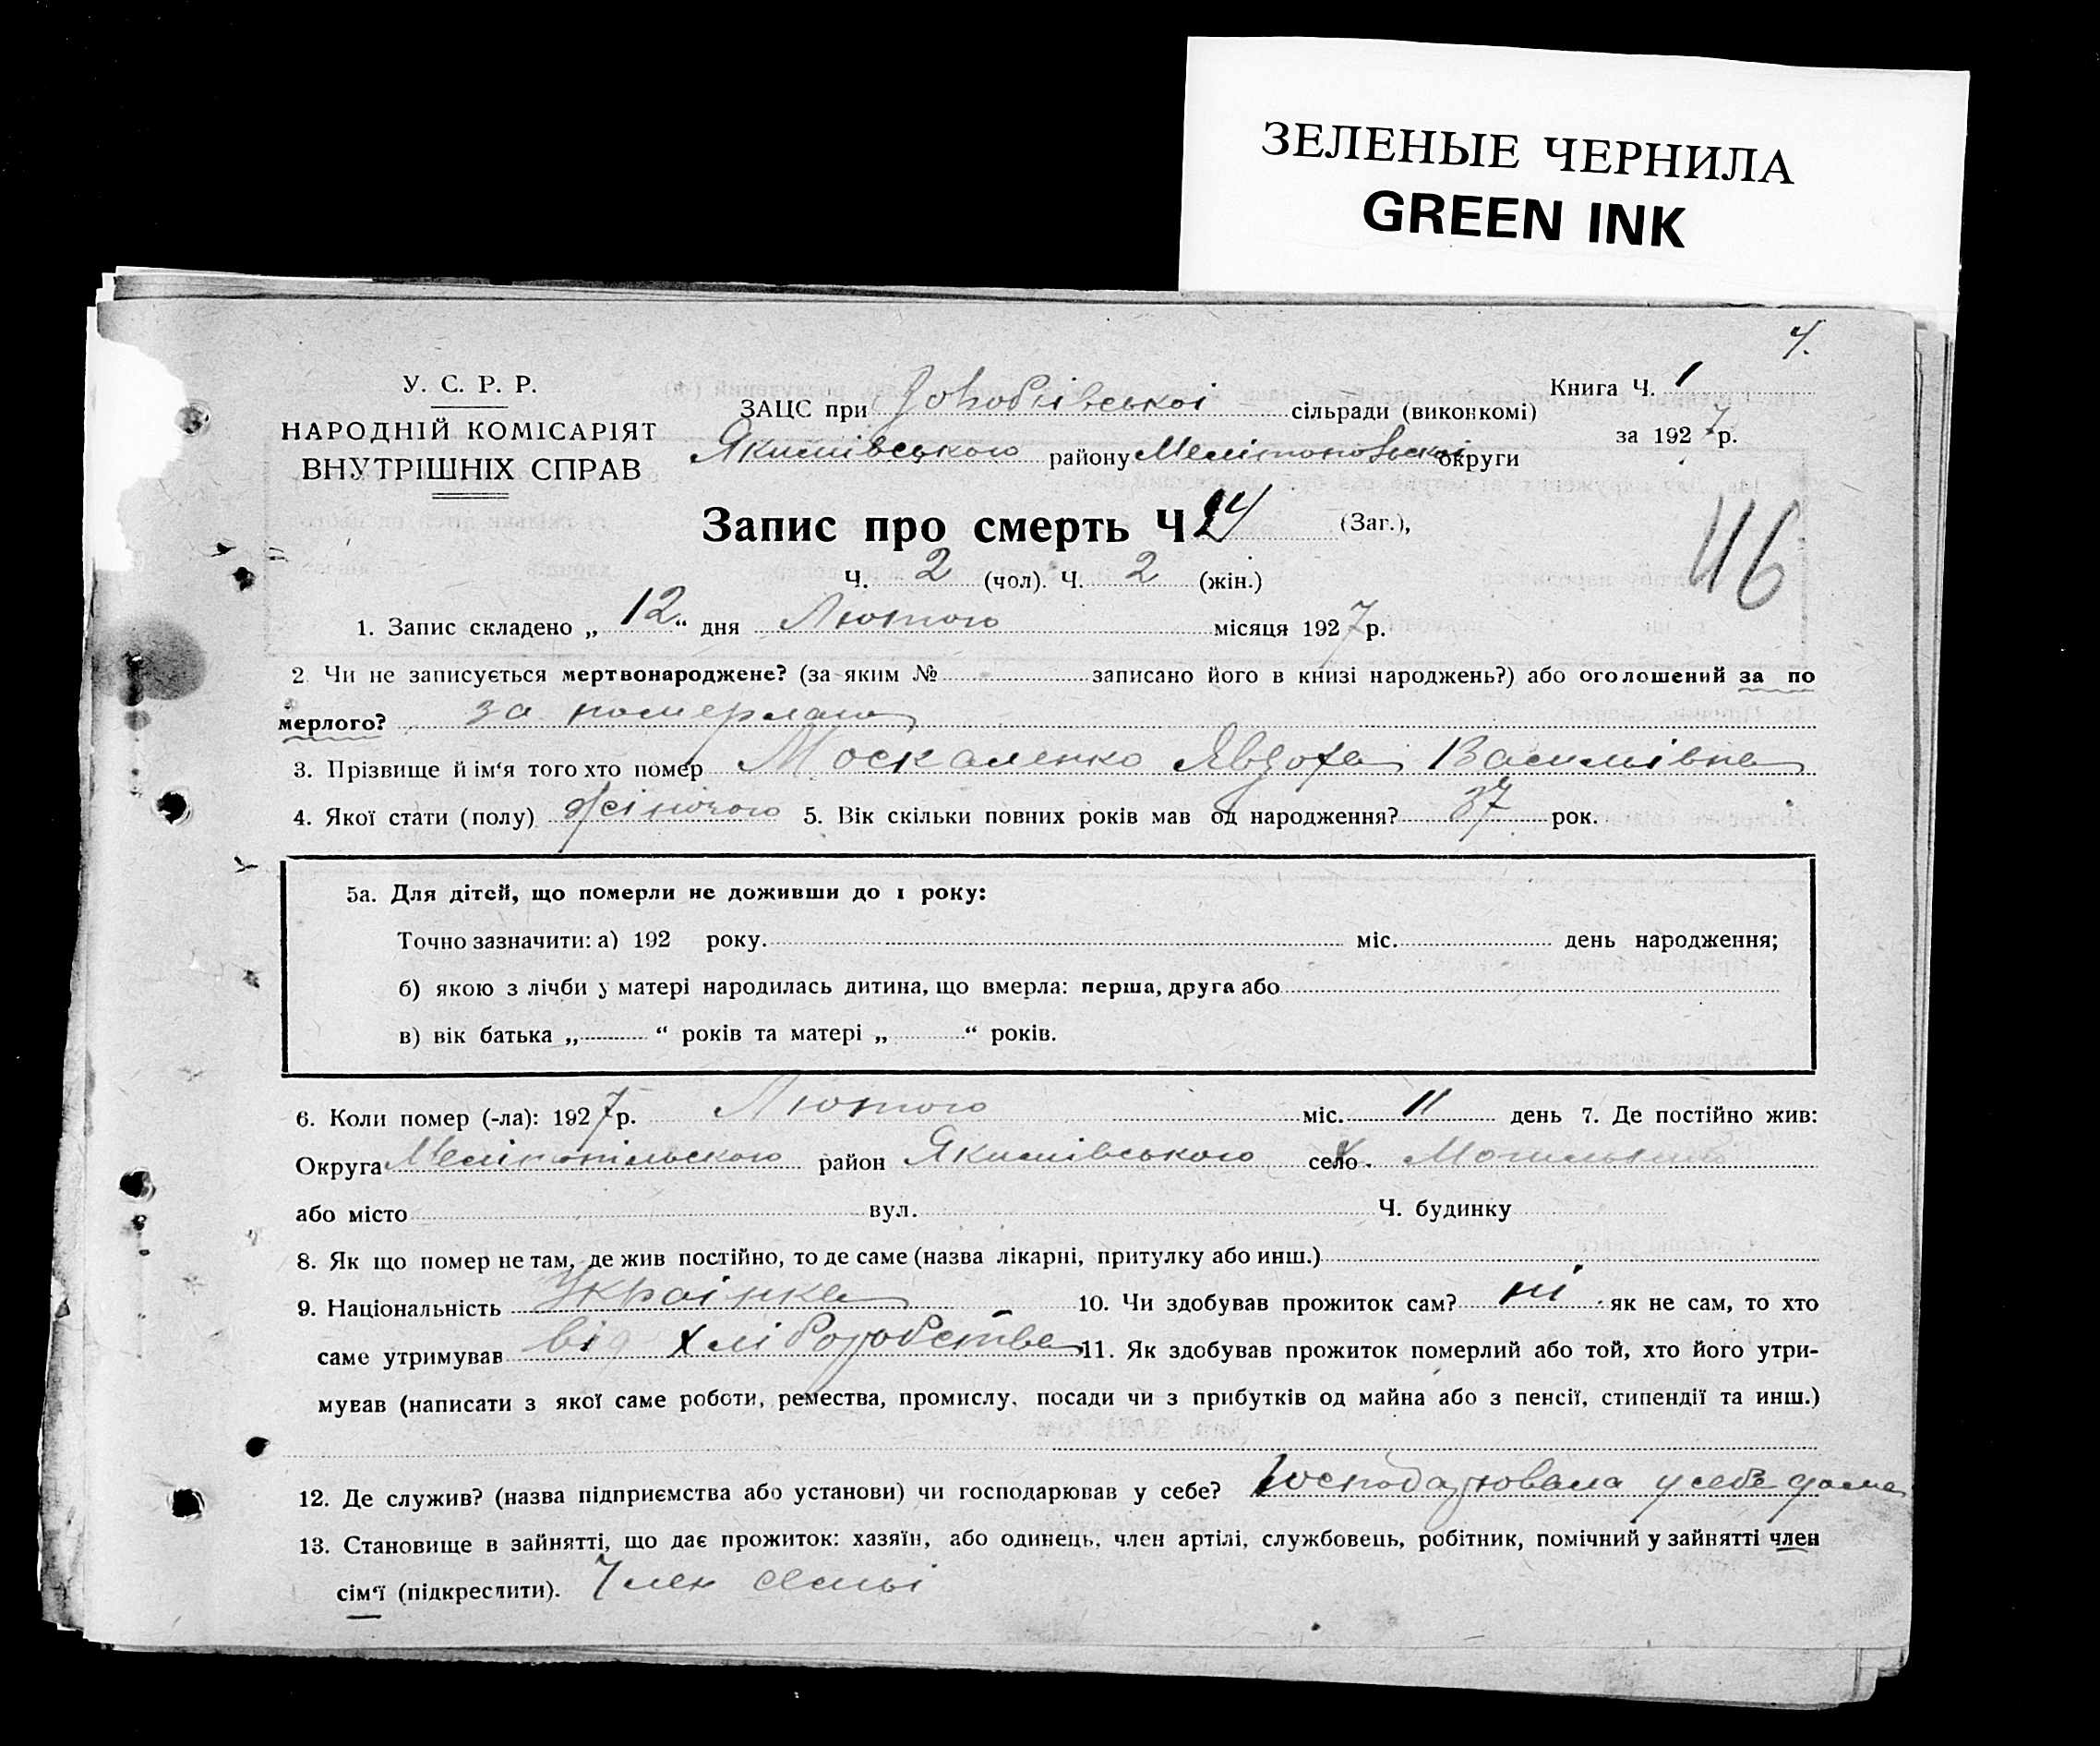 ЗЕЛЕНЫЕ ЧЕРНИЛА
GREEN INK
4.
У. С. Р. Р.
НАРОДНІЙ КОМІСАРІЯТ
ВНУТРІШНІХ СПРАВ
Книга Ч. 1
за 1927 р.
ЗАЦС при сільради (виконкомі)
Якимівського району округи
Запис про смерть Ч (Заг.),
Ч. 2 (чол). Ч. 2 (жін.)
46
1. Запис складено „ 12 “ дня Лютого місяця 1927 р.
2 Чи не записується мертвонароджене? (за яким № записано його в книзі народжень?) або оголошений за по
мерлого? за померлого
3. Прізвище й ім‘я того хто помер Москаленко Явдоха Василівна
4. Якої стати (полу) жіночого 5. Вік скільки повних років мав од народження? 37 рок.
5а. Для дітей, що померли не доживши до 1 року:
Точно зазначити: а) 192 року. міс. день народження;
б) якою з лічби у матері народилась дитина, що вмерла: перша, друга або
в) вік батька „ “ років та матері „ “ років.
6. Коли помер (-ла): 1927 р. Лютого міс. 11 день 7. Де постійно жив:
Округа Мелітопільского район Якимівського село
або місто вул. Ч. будинку
8. Як що помер не там, де жив постійно, то де саме (назва лікарні, притулку або инш.)
9. Національність Українка 10. Чи здобував прожиток сам? ні як не сам, то хто
саме утримував від хліборобства 11. Як здобував прожиток померлий або той, хто його утри-
мував (написати з якої саме роботи, ремества, промислу, посади чи з прибутків од майна або з пенсії, стипендії та инш.)
12. Де служив? (назва підприємства або установи) чи господарював у себе? Господарювала у себе дома
13. Становище в зайнятті, що дає прожиток: хазяїн, або одинець, член артілі, службовець, робітник, помічний у зайнятті член
сім‘ї (підкреслити). Член семьі